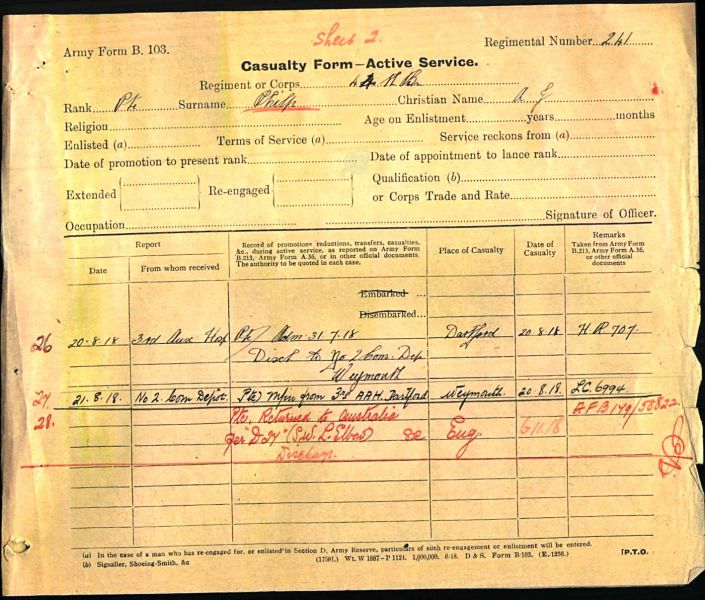 Sheet 2.
Army Form B. 103.
Regimental Number 241
Casualty Form—Active Service.
Regiment or Corps 44 N B
Rank Pte Surname Philp Christian Name A G
Religion Age on Enlistment years months
Enlisted (a) Terms of Service (a) Service reckons from (a)
Date of promotion to present rank Date of appointment to lance rank
Extended Re-engaged Qualification (b)
or Corps Trade and Rate
Occupation Signature of Officer.
Report
Date
From whom received
Record of promotions reductions, transfers, casualties, &c., during active service, as reported on Army Form B.213, Army Form A.36, or in other official documents. The authority to be quoted in each case.
Place of Casualty
Date of Casualty
Remarks
Taken from Army Form B.213, Army Form A.36, or other official documents
Embarked ...
Disembarked ...
26 20-8-18 3rd Aux Hop Pte Adm 31.7.18 Dartford 20.8.18 H.R 707
Disch to No 2 Com. Dep
Weymouth
27 21.8.18. No. 2. Com Depot. Pte from 3rd A.A.H. Dartford Weymouth. 20.8.18. LC. 6994
28. Pte. Returned to Australia Eng. 6/11/18 AFB 179/58822
per "D 24" (S.W. L. Elbow)
Discharge.
(a) In the case of a man who has re-engaged for, or enlisted in Section D, Army Reserve, particulars of such re-engagement or enlistment will be entered.
(b) Signaller, Shoeing-Smith, &c
(17591.) Wt. W 1887—P 1121. 1,000,000. 6/18. D & S. Form B/103. (E. 1256.)
[P.T.O.